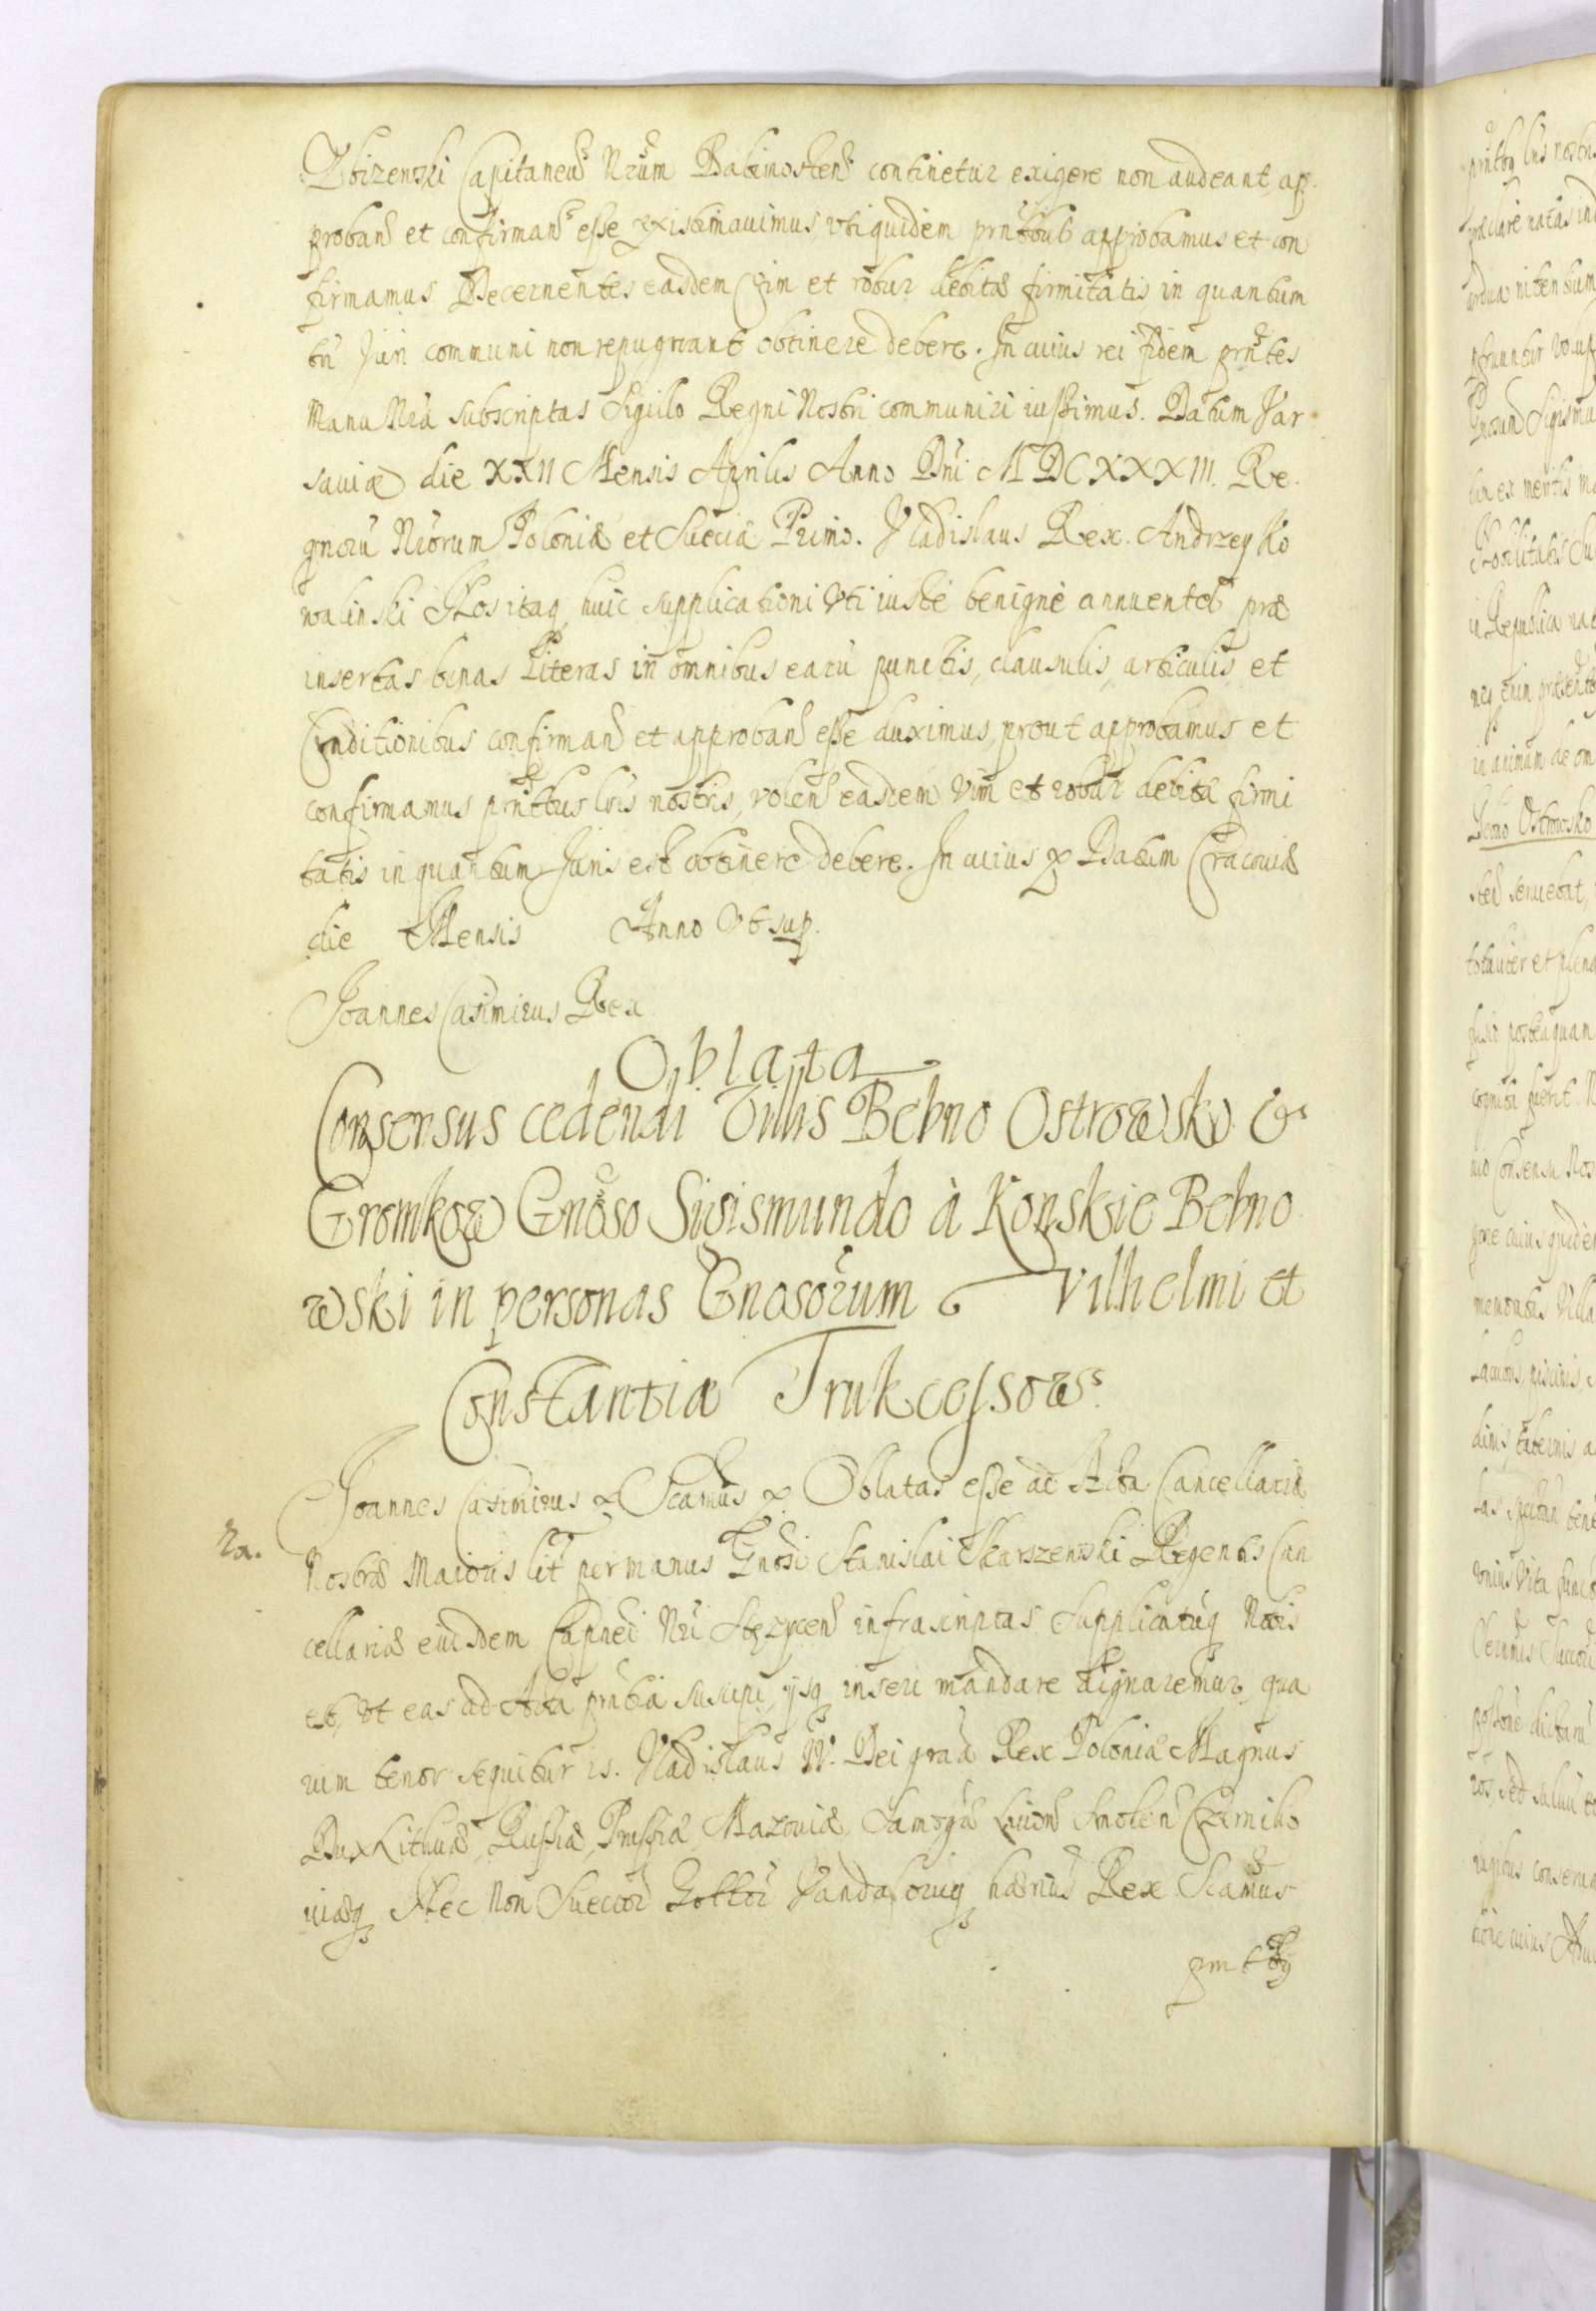 Zbizenski Capitaneus Nrum Babimosten continetur exigere non audeant, ap
proban et confirman esse existimauimus vti quidem prntbus approbamus et con
firmamus Decernentes easdem Vim et robur debitæ firmitatis, in quantum
tn Juri communi non repugnant obtinere debere. In cuius rei fidem prntes
Manu Nra subscriptas Sigillo Regni Nostri communiri iussimus. Datum Var
sauiæ die XXII Mensis Aprilis Anno Dni MDCXXXIII. Re
gnoru Nrorum Poloniæ et Sueciæ Primo. Vladislaus Rex. Andrzey Ko
walinski Nos itaq huic supplicationi vti iuste benigne annuentes præ
insertas binas Literas in omnibus earu punctis, clausulis, articulis et
Conditionibus confirman et approban esse duximus, prout approbamus et
confirmamus prntbus lris nostris, volen easdem Vim et robur debitæ firmi
tatis in quantum Juris est obtinere debere. In cuius Datum Cracouiæ
die Mensis Anno Vt sup.
Joannes Casimirus Rex
Oblata
Consensus cedendi Villis Bebno Ostrowsko &
Gromkow Gnoso Sigismundo à Konskie Bebno
wski in personas Gnosorum Vilhelmi et
Constantiæ Trukcessows.
Joannes Casimirus Scamus Oblatas esse ad Acta Cancellariæ
Nostræ Maioris lit per manus Gnosi Stanislai Skarszewski Regentis Can
cellariæ eiusdem Capnei Nri Stezycen infrascriptas Supplicatuq Nobis
est, vt eas ad Acta prntia suscipi, ijsq inseri mandare dignaremur, qua
rum tenor sequitur is. Vladislaus IV. Dei gratia Rex Poloniæ Magnus
Dux Lithuæ, Russiæ, Prussiæ, Mazouiæ Samogæ Liuon Smolen Czerniho
uiæq Nec non Suecor Gottor Vandalorúq hærius Rex Scamus
prntby